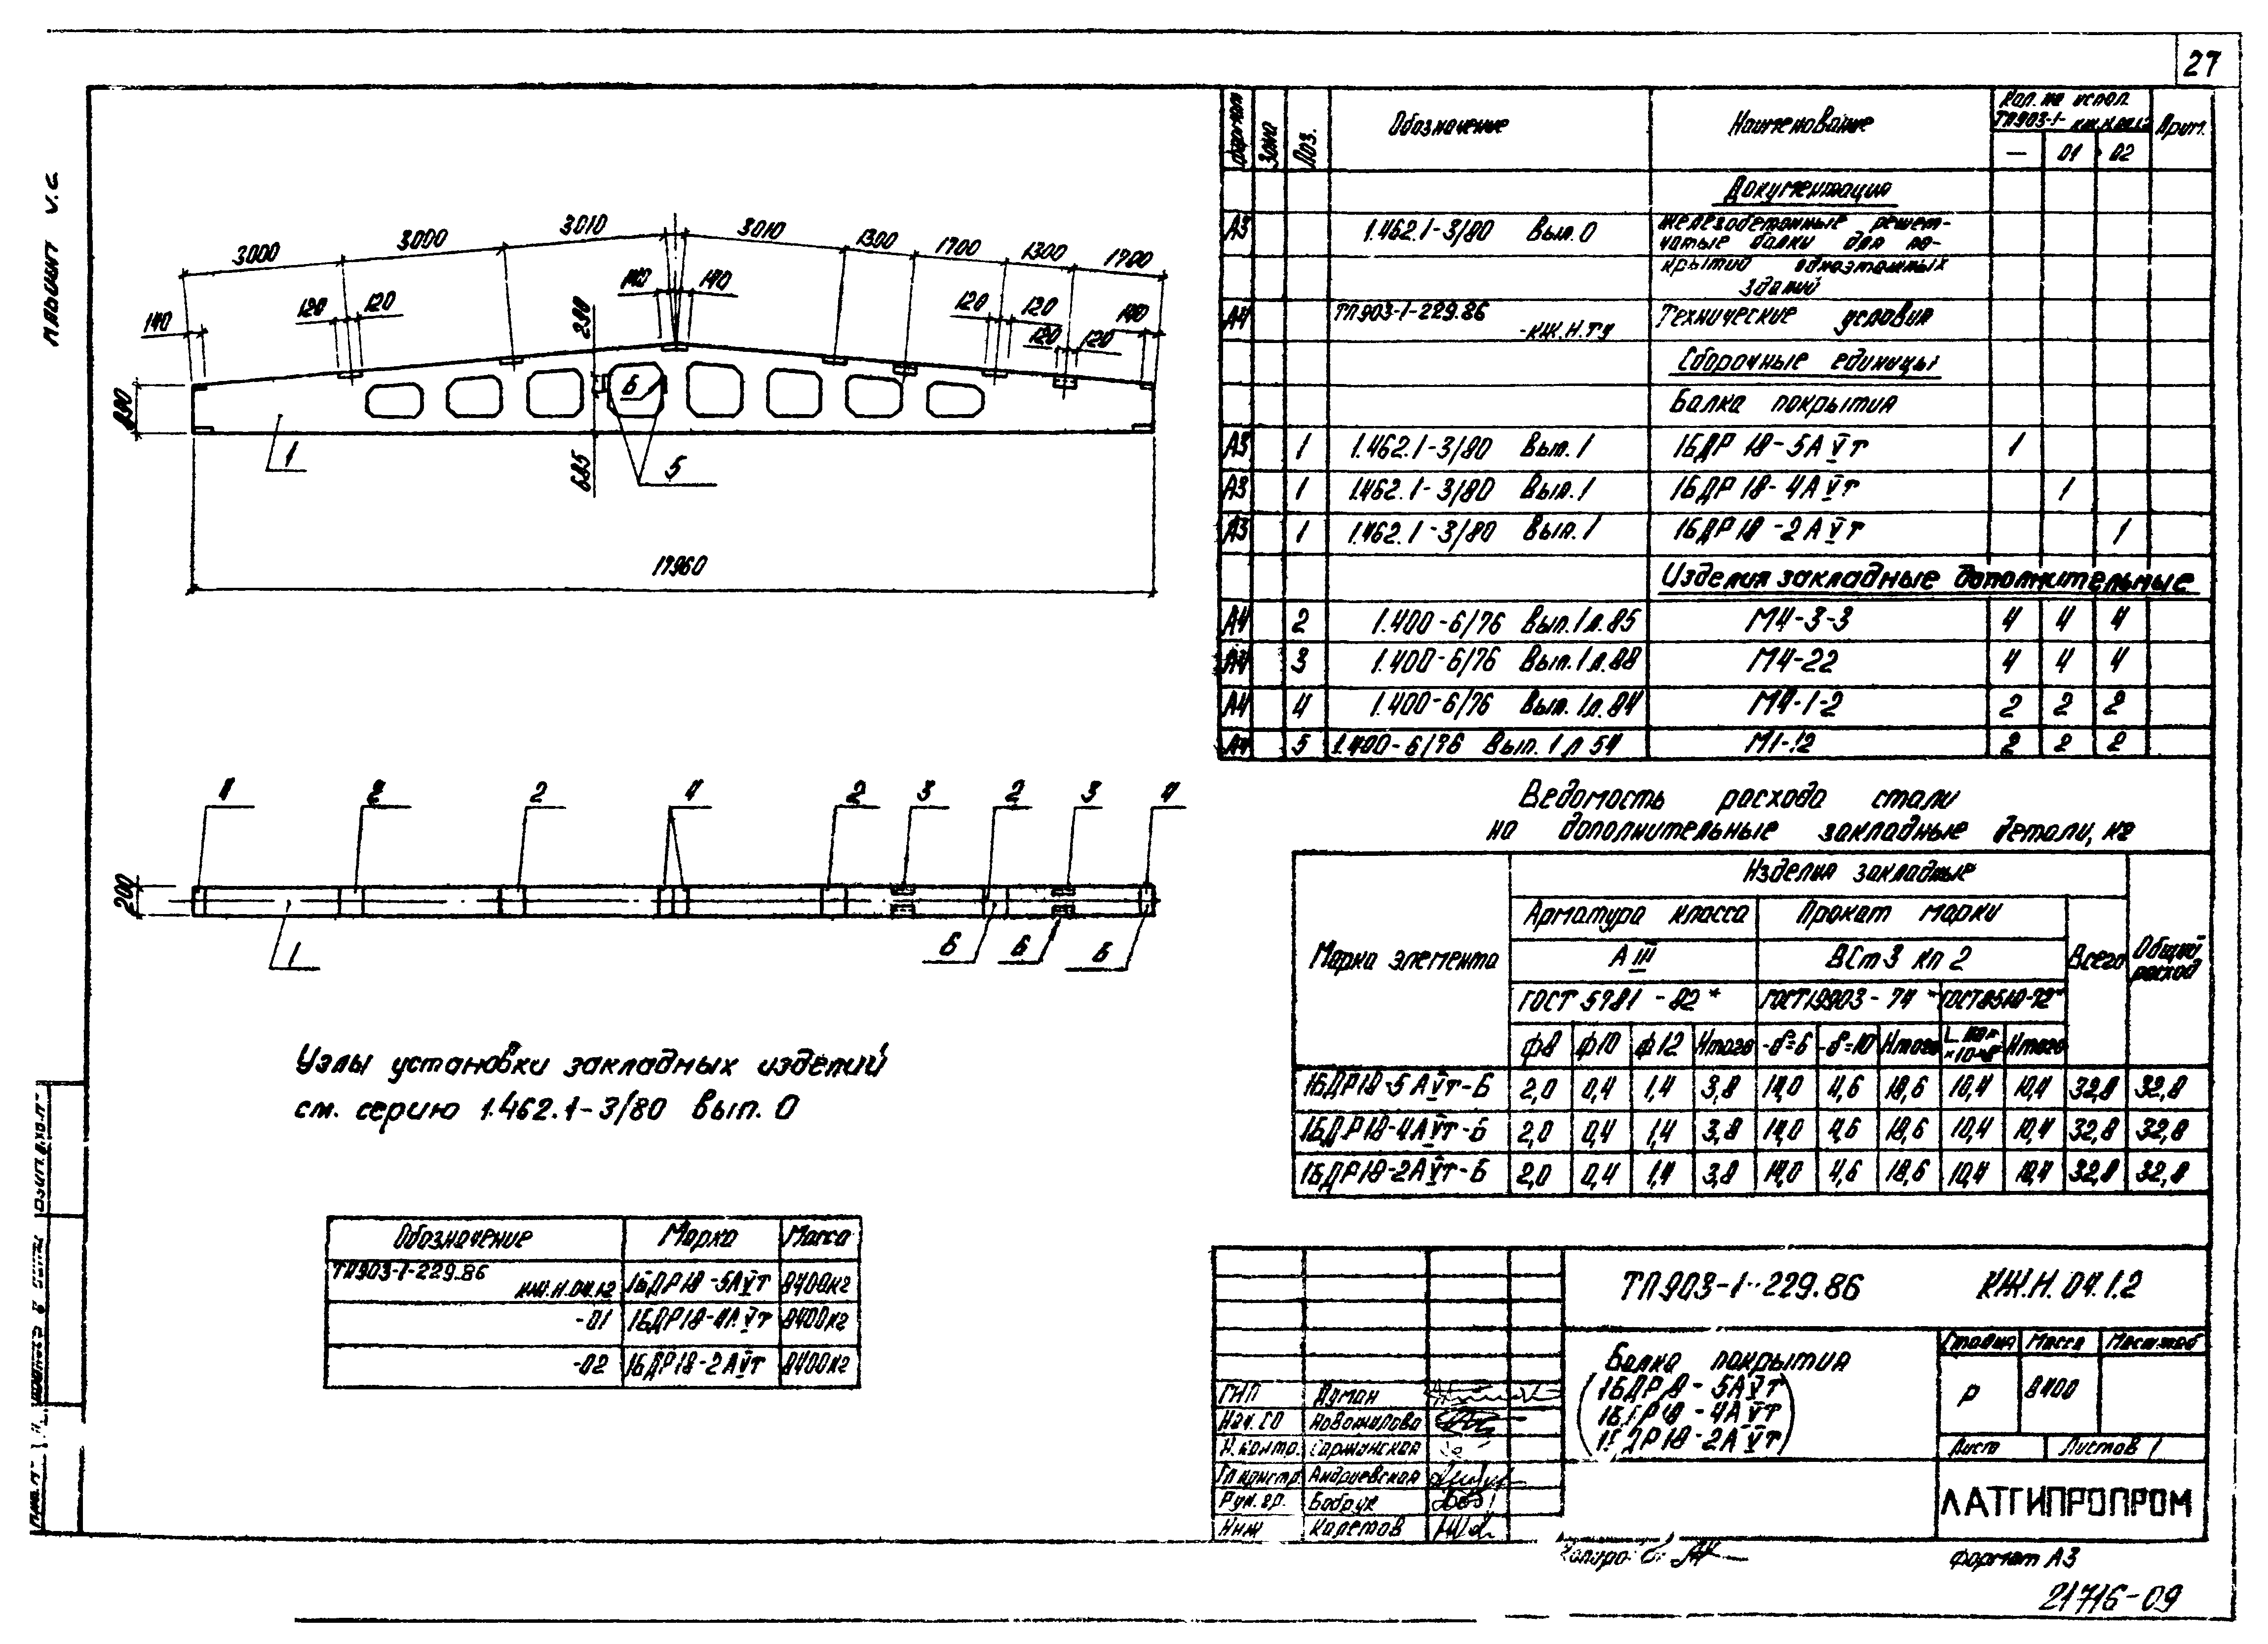 27
Альбом V.С
3000
3000
3010
3010
1300
1700
1300
1700
140
120
120
140
140
290
120
120
120
120
140
890
Б
685
1
5
17960
4
2
2
4
2
3
2
3
4
200
1
Б
Б
Б
Узлы установки закладных изделий
см. серию 1.462.1-3/80 вып. 0
Обозначение Марка Масса
ТП903-1-229.86 КЖ.Н.04.1.2 1БДР18-5АVт 8400кг
-01 1БДР18-4АVт 8400кг
-02 1БДР18-2АVт 8400кг
Формат Зона Поз. Обозначение Наименование Кол. на испол. ТП903-1- КЖ.Н.04.1.2 Прим.
— 01 02
Документация
А3 1.462.1-3/80 Вып. 0 Железобетонные решет-
чатые балки для по-
крытий одноэтажных
зданий
А4 ТП903-1-229.86 -КЖ.Н.ТУ Технические условия
Сборочные единицы
Балка покрытия
А3 1 1.462.1-3/80 Вып. 1 1БДР 18-5АVт 1
А3 1 1.462.1-3/80 Вып. 1 1БДР 18-4АVт 1
А3 1 1.462.1-3/80 Вып. 1 1БДР18-2АVт 1
Изделия закладные дополнительные
А4 2 1.400-6/76 Вып. 1 л. 85 М4-3-3 4 4 4
А4 3 1.400-6/76 Вып. 1 л. 88 М4-22 4 4 4
А4 4 1.400-6/76 Вып. 1 л. 84 М4-1-2 2 2 2
А4 5 1.400-6/76 Вып. 1 л 54 М1-12 2 2 2
Ведомость расхода стали
на дополнительные закладные детали, кг
Марка элемента Изделия закладные Общий расход
Арматура класса Прокат марки Всего
АIII ВСт3 кп2
ГОСТ 5781-82* ГОСТ19903-74* ГОСТ8510-72*
ф8 ф10 ф12 Итого -δ=6 -δ=10 Итого Итого
1БДР18-5АVт-Б 2,0 0,4 1,4 3,8 14,0 4,6 18,6 10,4 10,4 32,8 32,8
1БДР18-4АVт-Б 2,0 0,4 1,4 3,8 14,0 4,6 18,6 10,4 10,4 32,8 32,8
1БДР18-2АVт-Б 2,0 0,4 1,4 3,8 14,0 4,6 18,6 10,4 10,4 32,8 32,8
ТП903-1-229.86 КЖ.Н.04.1.2
Балка покрытия
(1БДР18-5АVт
1БДР18-4АVт
1БДР18-2АVт)
Стадия Масса Масштаб
Р 8400
Лист Листов 1
ЛАТГИПРОПРОМ
ГИП Думан
Нач. СО Новожилова
Н. контр. Сарманская
Гл констр. Андриевская
Рук. гр. Бобрук
Инж Колетов
Формат А3
21716-09